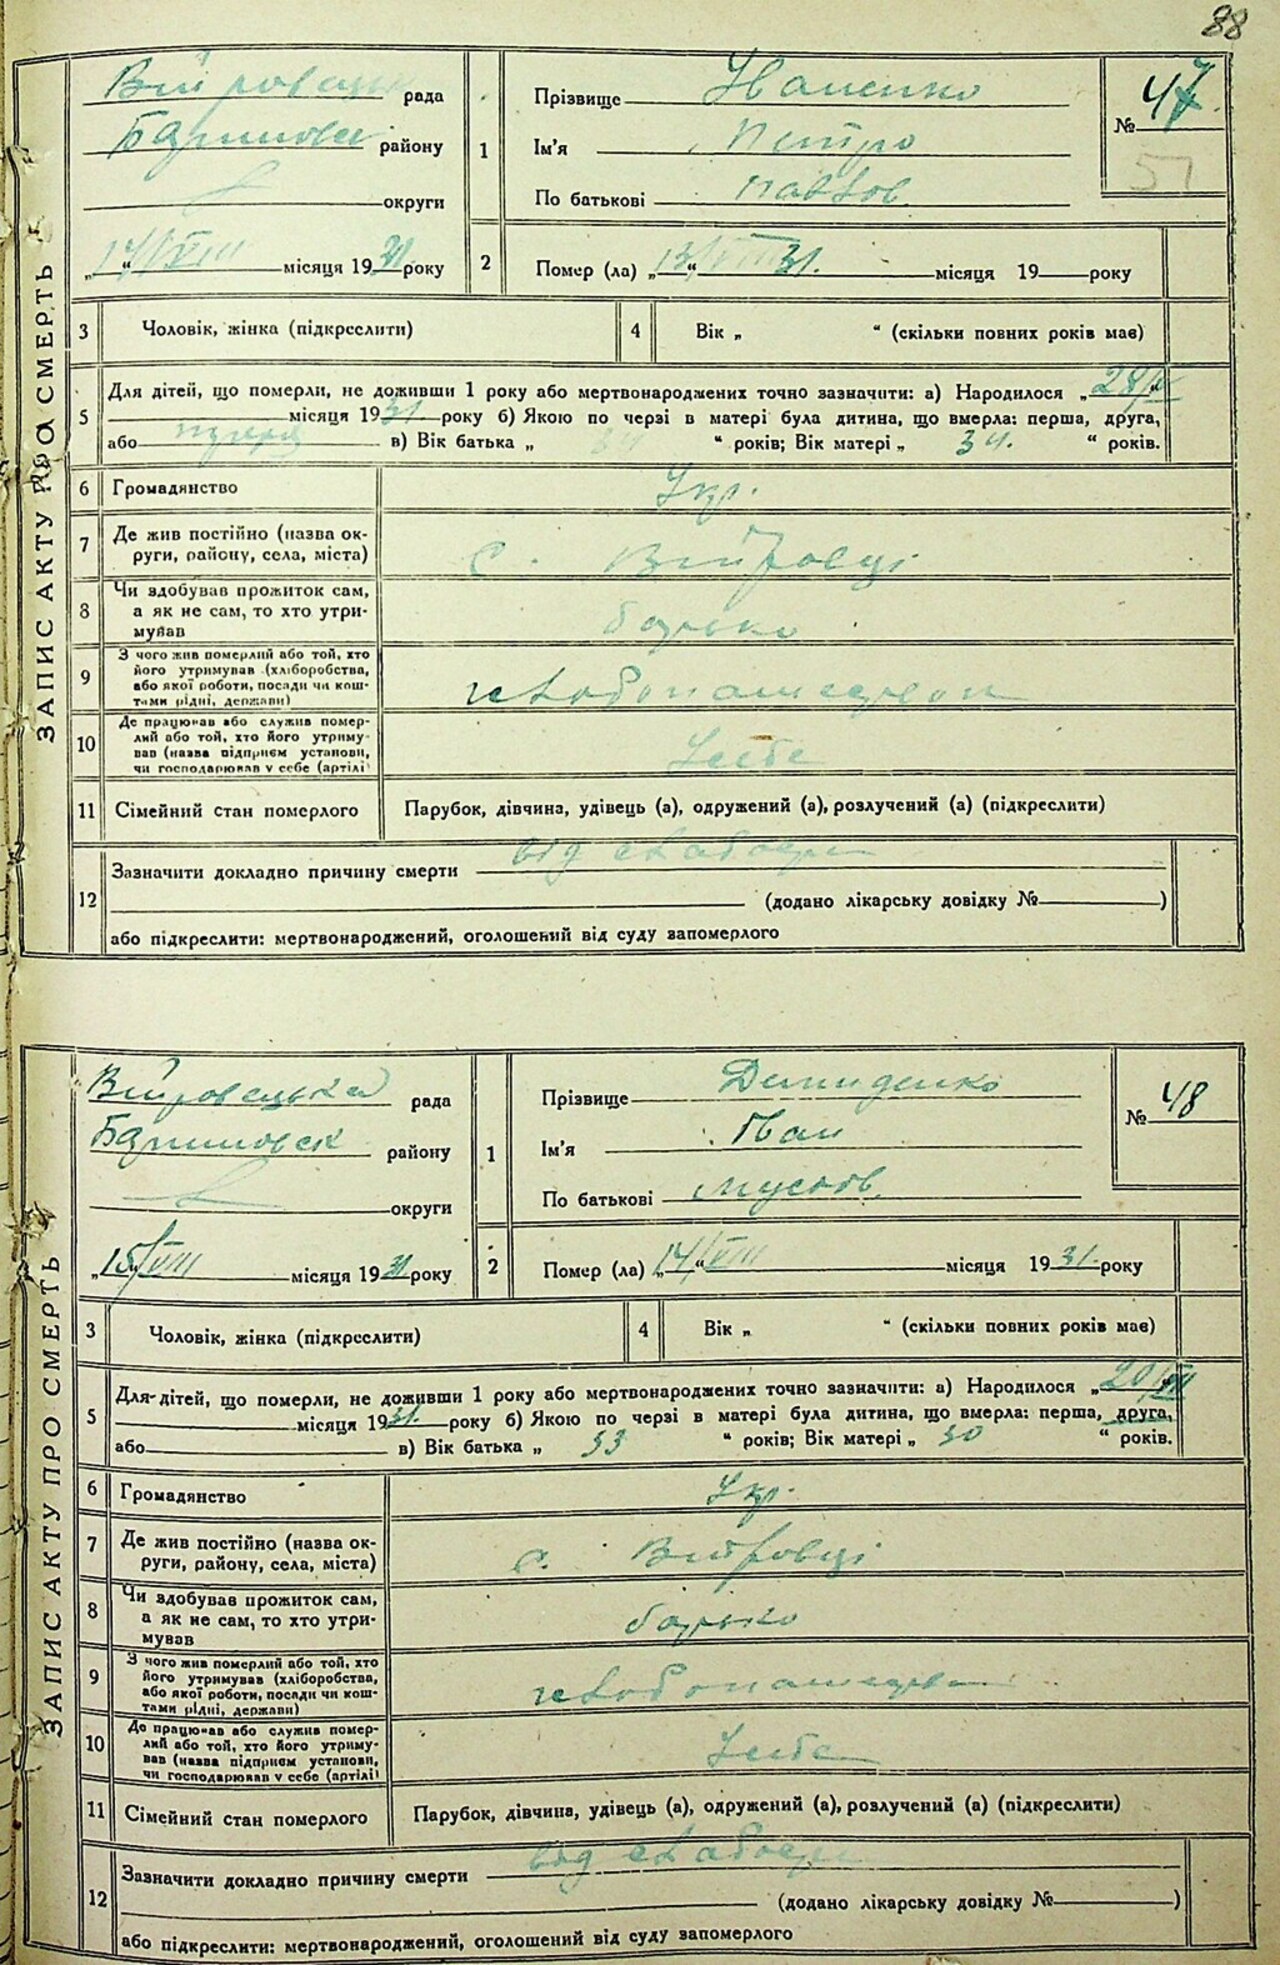 88
ЗАПИС АКТУ ПРО СМЕРТЬ
рада
району
округи
14/VIII місяця 1931 року
1
Прізвище Іваненко
Ім'я Петро
По батькові Павлов.
№ 47
51
2
Помер (ла) „13/VIII“ 31. місяця 19 року
3 Чоловік, жінка (підкреслити)
4 Вік „ “ (скільки повних років має)
5
Для дітей, що померли, не доживши 1 року або мертвонароджених точно зазначити: а) Народилося „28/
місяця 1931. року б) Якою по черзі в матері була дитина, що вмерла: перша, друга,
або в) Вік батька „ “ років; Вік матері „ 34. “ років.
6 Громадянство Укр.
7
Де жив постійно (назва ок-
руги, району, села, міста)
с. Війтовці
8
Чи здобував прожиток сам,
а як не сам, то хто утри-
мував
батько
9
З чого жив померлий або той, хто
його утримував (хліборобства,
або якої роботи, посади чи кош-
тами рідні, держави)
10
Де працював або служив помер-
лий або той, хто його утриму-
вав (назва підприєм установи,
чи господарював у себе (артілі)
11 Сімейний стан померлого Парубок, дівчина, удівець (а), одружений (а), розлучений (а) (підкреслити)
12
Зазначити докладно причину смерти від слабости
(додано лікарську довідку № )
або підкреслити: мертвонароджений, оголошений від суду запомерлого
ЗАПИС АКТУ ПРО СМЕРТЬ
рада
району
округи
„15/VIII місяця 1931 року
1
Прізвище Демиденко
Ім'я Іван
По батькові
№ 48
2
Помер (ла) „14/“ VIII місяця 1931. року
3 Чоловік, жінка (підкреслити)
4 Вік „ “ (скільки повних років має)
5
Для дітей, що померли, не доживши 1 року або мертвонароджених точно зазначити: а) Народилося „20/VII
місяця 1931. року б) Якою по черзі в матері була дитина, що вмерла: перша, друга,
або в) Вік батька „ 33 “ років; Вік матері „ 30 “ років.
6 Громадянство Укр.
7
Де жив постійно (назва ок-
руги, району, села, міста)
с. Війтовці
8
Чи здобував прожиток сам,
а як не сам, то хто утри-
мував
батько
9
З чого жив померлий або той, хто
його утримував (хліборобства,
або якої роботи, посади чи кош-
тами рідні, держави)
10
Де працював або служив помер-
лий або той, хто його утриму-
вав (назва підприєм установи,
чи господарював у себе (артілі)
11 Сімейний стан померлого Парубок, дівчина, удівець (а), одружений (а), розлучений (а) (підкреслити)
12
Зазначити докладно причину смерти від слабости
(додано лікарську довідку № )
або підкреслити: мертвонароджений, оголошений від суду запомерлого